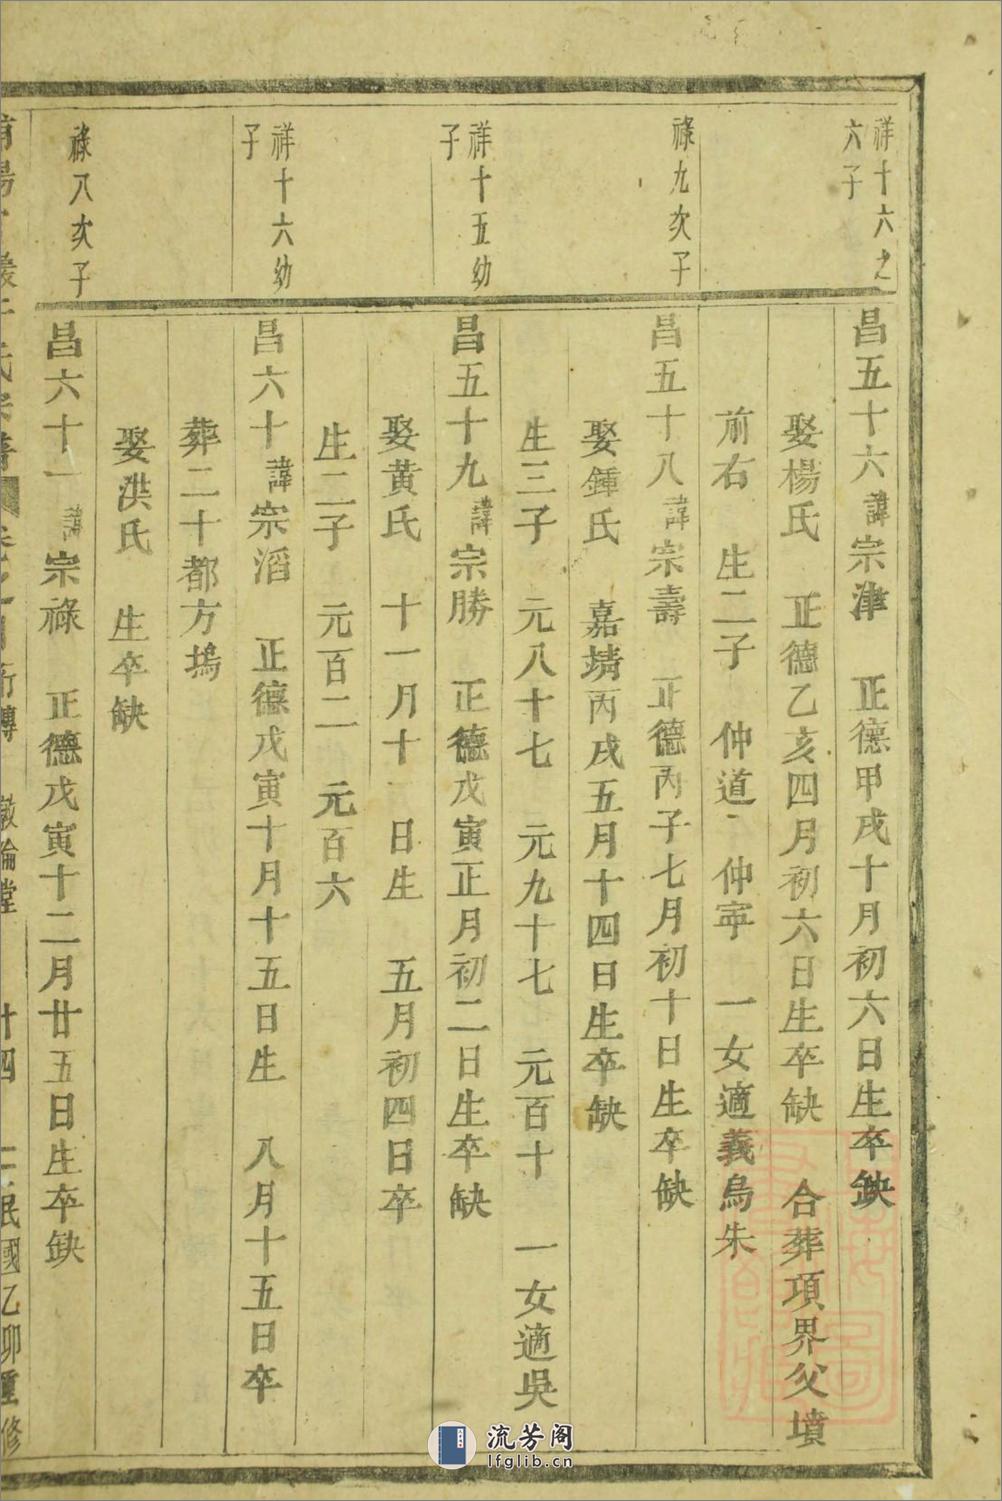 祥十六之
六子
昌五十六諱宗津　正德甲戌十月初六日生卒缺
娶楊氏　正德乙亥四月初六日生卒缺　合葬項界父墳
前右　生二子　仲道　仲寧　一女適義烏朱
祿九次子
昌五十八諱宗壽　正德丙子七月初十日生卒缺
娶鍾氏　嘉靖丙戌五月十四日生卒缺
生三子　元八十七　元九十七　元百十　一女適吳
祥十五幼
子
昌五十九諱宗勝　正德戊寅正月初二日生卒缺
娶黃氏　十一月十　日生　五月初四日卒
生二子　元百二　元百六
祥十六幼
子
昌六十諱宗滔　正德戊寅十月十五日生　八月十五日卒
葬二十都方塢
娶洪氏　生卒缺
祿八次子
昌六十一諱宗祿　正德戊寅十二月廿五日生卒缺
氏宗譜　行傳　敦倫堂　廿四　民國乙卯重修
流芳阁
lfglib.cn